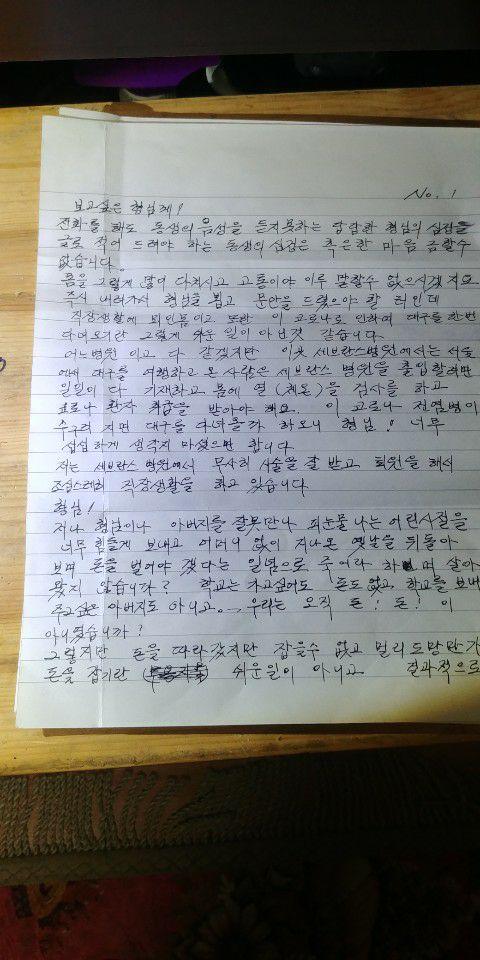 No. 1
보고싶은 형님께!
전화를 해도 동생의 음성을 듣지못하는 답답한 형님의 심정을
글로 적어 드려야 하는 동생의 심정은 측은한 마음 금할수
없습니다.
몸을 그렇게 많이 다치시고 고통이야 이루 말할수 없으시겠지요
즉시 내려가서 형님을 뵙고 문안을 드렸으야 할 터인데
직장생활에 뫼인몸이고 또한 이 코로나로 인하여 대구를 한번
다녀오기란 그렇게 쉬운 일이 아닌것 같습니다.
어느병원 이고 다 같겠지만 이곳 세브란스병원에서는 서울
에서 대구를 여행하고 온 사람은 세브란스 병원을 출입할려면
일일이 다 기재하고 몸에 열(체온)을 검사를 하고
코로나 환자 취급을 받아야 해요. 이 코로나 전염병이
수구러 지면 대구를 다녀올까 하오니 형님! 너무
섭섭하게 생각지 마셨으면 합니다.
저는 세브란스 병원에서 무사히 시술을 잘 받고 퇴원을 해서
조심스레히 직장생활을 하고 있습니다.
형님!
저나 형님이나 아버지를 잘못만나 피눈물 나는 어린시절을
너무 힘들게 보내고 어머니 없이 지나온 옛날을 뒤돌아
보며 돈을 벌어야 겠다는 일념으로 죽어라 하며 살아
왔지 않습니까? 학교는 가고싶어도 돈도없고 학교를 보내
주고싶은 아버지도 아니고... 우리는 오직 돈! 돈! 이
아니였습니까?
그렇지만 돈을 따라갔지만 잡을수 없고 멀리도망만가
돈을 잡기란 쉬운일이 아니고 결과적으로